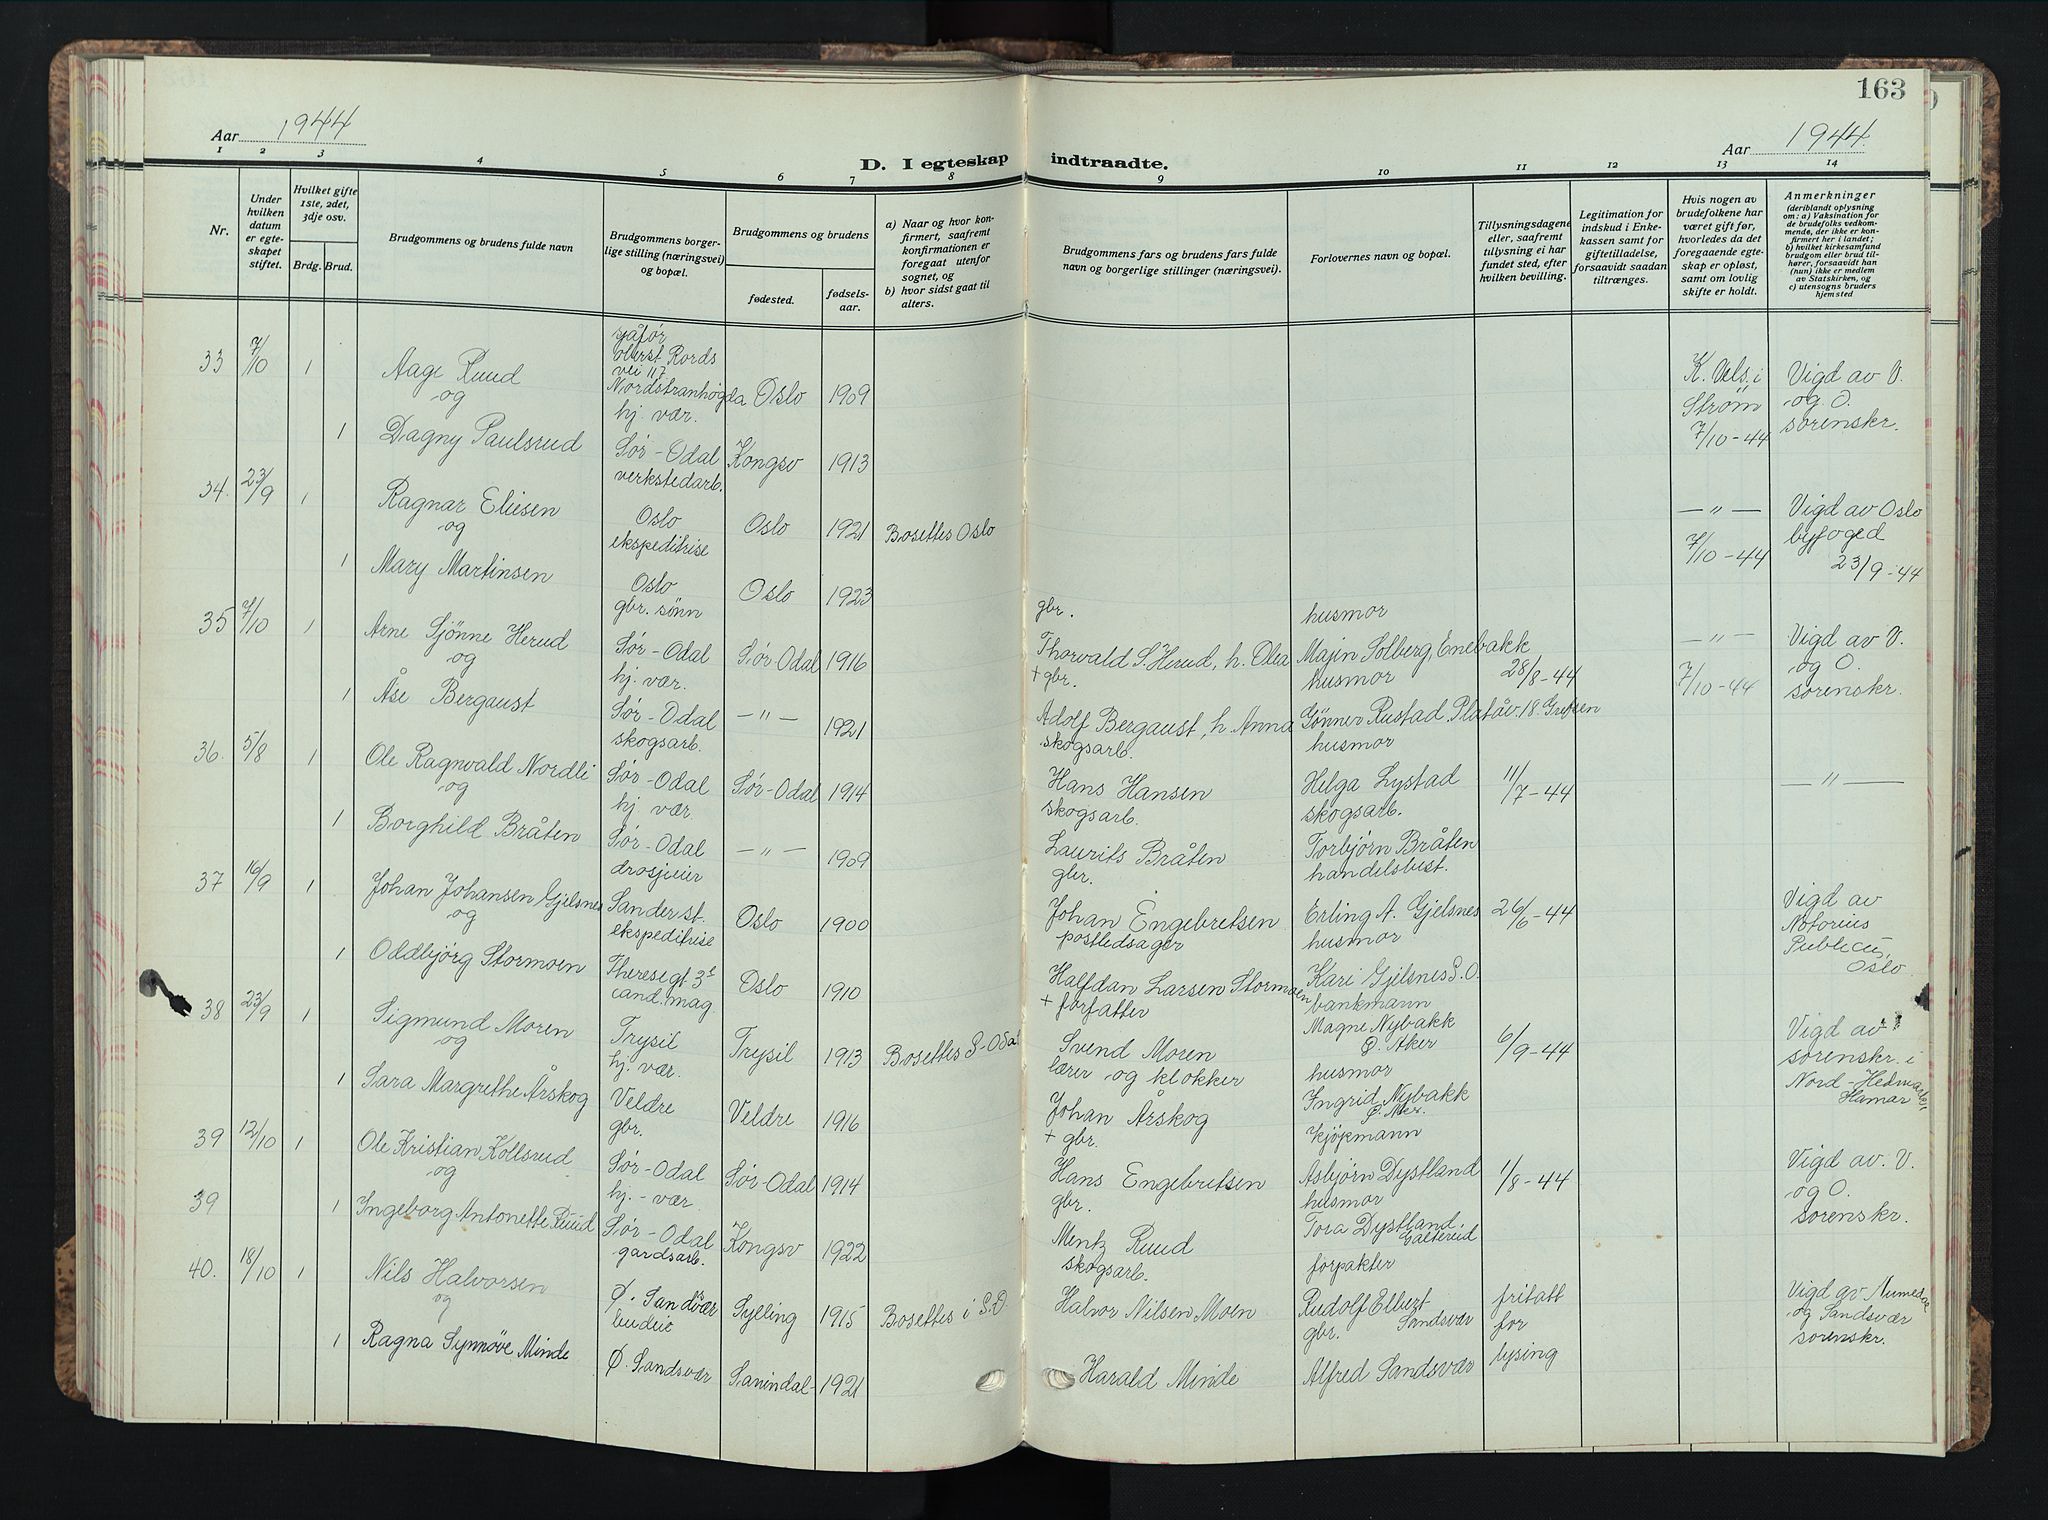 163
Aar 1944
Aar 1944.
D. I egteskap indtraadte.
1 2 3 4 5 6 7 8 9 10 11 12 13 14
Nr.
Under hvilken datum er egteskapet stiftet.
Hvilket gifte 1ste, 2det, 3dje osv.
Brdg. Brud.
Brudgommens og brudens fulde navn
Brudgommens borgerlige stilling (næringsvei) og bopæl.
Brudgommens og brudens
fødested. fødselsaar.
a) Naar og hvor konfirmert, saafremt konfirmationen er foregaat utenfor sognet, og
b) hvor sidst gaat til alters.
Brudgommens fars og brudens fars fulde navn og borgerlige stillinger (næringsvei).
Forlovernes navn og bopæl.
Tillysningsdagene eller, saafremt tillysning ei har fundet sted, efter hvilken bevilling.
Legitimation for indskud i Enkekassen samt for giftetilladelse, forsaavidt saadan tiltrænges.
Hvis nogen av brudefolkene har været gift før, hvorledes da det foregaaende egteskap er opløst, samt om lovlig skifte er holdt.
Anmerkninger
(deriblandt oplysning om: a) Vaksination for de brudefolks vedkommende, der ikke er konfirmert her i landet; b) hvilket kirkesamfund brudgom eller brud tilhører, forsaavidt han (hun) ikke er medlem av Statskirken, og c) utensogns bruders hjemsted
sjåfør
33 7/10 1 Aage Ruud oberst Rords vei 117 Nordstranhøgda Oslo 1909 K. Vels. i Strøm 7/10-44 Vigd av V. og O. sorenskr.
og
hj. vær.
1 Dagny Paulsrud Sør-Odal Kongsv 1913
verkstedarb.
34. 23/9 1 Ragnar Eliesen Oslo Oslo 1921 Bosettes Oslo —"— 7/10-44 Vigd av Oslo byfoged 23/9-44
og
ekspeditrise
1 Mary Martinsen Oslo Oslo 1923
gbr. sønn gbr. husmor
35 7/10 1 Arne Sjønne Herud Sør-Odal Sør-Odal 1916 Thorvald S. Herud, h. Olea Majin Solberg, Enebakk 28/8-44 —"— 7/10-44 Vigd av V. og O. sorenskr.
og
hj. vær. + gbr. husmor
1 Åse Bergaust Sør-Odal —"— 1921 Adolf Bergaust, h. Anna Gønner Rustad Platåv. 18. Grefsen
skogsarb. skogsarb. husmor
36. 5/8 1 Ole Ragnvald Nordli Sør-Odal Sør-Odal 1914 Hans Hansen Helga Lystad 11/7-44 —"—
og
hj. vær. skogsarb. skogsarb.
1 Borghild Bråten Sør-Odal —"— 1909 Laurits Bråten Torbjørn Bråten
drosjeeier gbr. handelsbest.
37 16/9 1 Johan Johansen Gjelsnes Sander st. Oslo 1900 Johan Engebretsen Erling A. Gjelsnes 26/6-44 Vigd av Notorius Publicus, Oslo
og
ekspeditrise postledsager husmor
1 Oddbjörg Stormoen Theresegt. 3 Oslo 1910 Halfdan Larsen Stormoen Kari Gjelsnes S.O.
cand. mag. + forfatter bankmann
38 23/9 1 Sigmund Moren Trysil Trysil 1913 Bosettes S-Odal Svend Moren Magne Nybakk Ø. Aker 6/9-44 Vigd av sorenskr. i Nord-Hedmark Hamar
og
hj. vær. lærer og klokker husmor
1 Sara Margrethe Årskog Veldre Veldre 1916 Johan Årskog Ingrid Nybakk
gbr. + gbr.
39 12/10 1 Ole Kristian Kollsrud Sør-Odal Sør-Odal 1914 Hans Engebretsen Asbjørn Dystland 1/8-44 Vigd av. V. og O. sorenskr.
og
hj.-vær. gbr. husmor
39 1 Ingeborg Antonette Ruud Sør-Odal Kongsv 1922 Mentz Ruud Tora Dystland
gardsarb. skogsarb. forpakter
40. 18/10 1 Nils Halvorsen Ø. Sandsvær Sylling 1915 Bosettes i S.O. Halvor Nilsen Moen Rudolf Elbert Sandsvær fritatt for lysing Vigd av Numedal og Sandsvær sorenskr.
og
budeie gbr.
1 Ragna Synnøve Minde Ø. Sandsvær 1921 Harald Minde Alfred Sandsvær